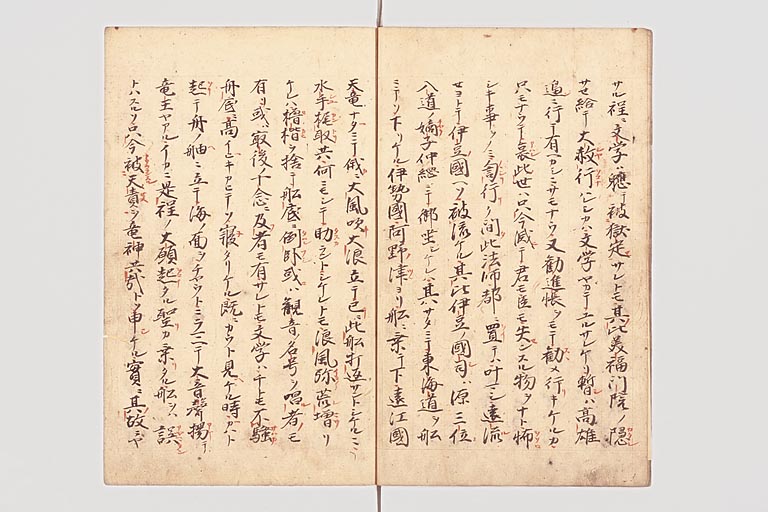 サル程ニ文学ハ軈テ被獄定サレトモ其比美福門院ノ隠
サセ給テ大赦行ハレシカハ文学ヤカテユルサレケリ暫ハ高雄
邊ニ行テ有ヘカシサモナクテ又勧進帳ヲモテ勧メ行キケルカ
只モナクテ哀此世ハ只今滅テ君モ臣モ失ンスル物ヲナト怖
シキ事ヲノミ
行ク間此法師都ニ置テハ叶マシ遠流
セヨトテ伊豆國ヘソ被流ケル其比伊豆ノ國司ハ源三位
入道ノ嫡子仲綱ニテ御坐シケレハ其ノサタニテ東海道ヲ船
ニテソ下リケル伊勢國阿野津ヨリ船ニ乗テ下ル遠江國
天竜ナタニテ俄ニ大風吹大浪立テ已ニ此船打返サントシケルニ
水手梶取共何モシテ助ラントシケレトモ浪風弥荒増リ
ケレハ櫓楷ヲ捨テ船底ニ倒臥或ハ観音ノ名号ヲ唱者モ
有リ或ハ最後ノ十念ニ及者モ有サレトモ文学ハチトモ不騒
舟底ニ高イヒキカヒテソ寝タリケル既ニカウト見ケル時カハト
起テ舟ノ舳ニ立テ海ノ面ヲチヤウトニラミテ大音聲揚テ
竜王ヤアル
是程ノ大願起タル聖カ乗タル船ヲハ誤
トハスルソ只今被天責ヲ竜神共哉トソ申ケル實ニ其故ニヤ